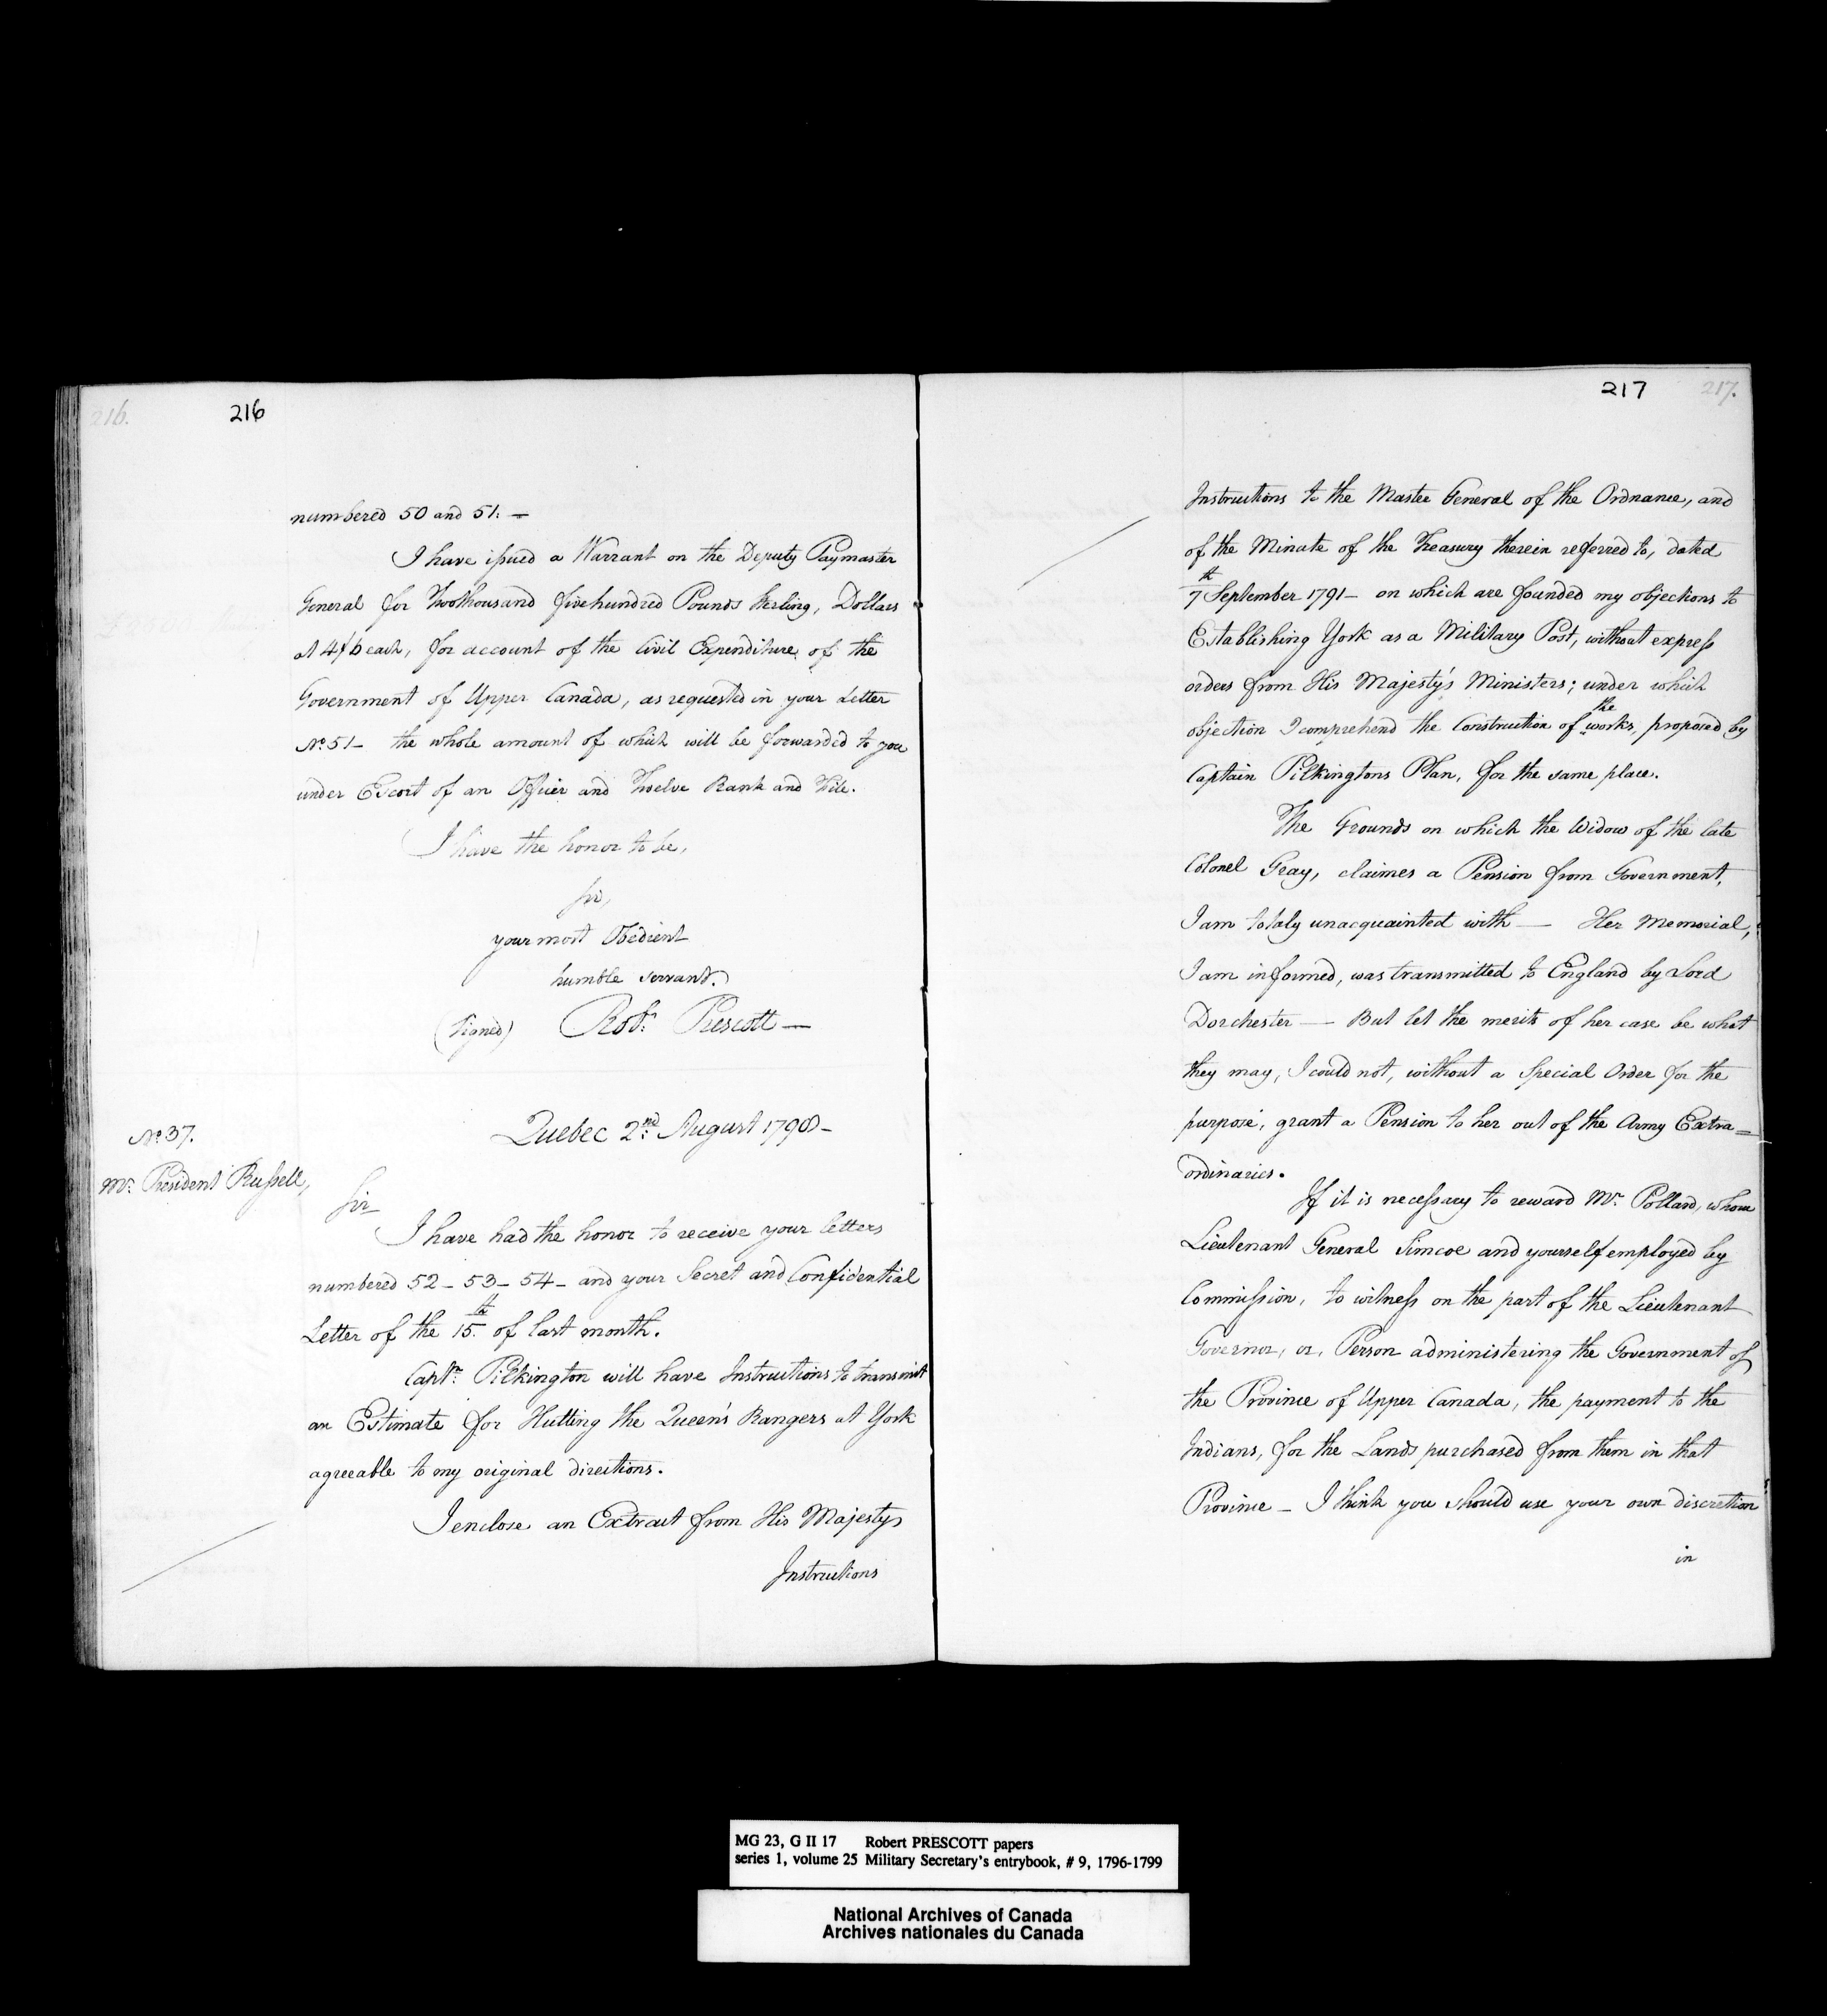 216.
216
numbered 50 and 51. —
I have issued a Warrant on the Deputy Paymaster
General for Twothousand fivehundred Pounds Sterling, Dollars
at 4/6 each, for account of the Civil Expenditure of the
Government of Upper Canada, as requested in your Letter
No. 51 — the whole amount of which will be forwarded to you
under Escort of an Officer and Twelve Rank and File.
I have the honor to be,
Sir,
your most Obedient
humble servant.
(Signed) Robt. Prescott —
No. 37.
Quebec 2nd. August 1798 —
Mr. President Russell,
Sir
I have had the honor to receive your letters
numbered 52 — 53 — 54 — and your Secret and Confidential
Letter of the 15th. of last month.
Captn. Pilkington will have Instructions to transmit
an Estimate for Hutting the Queen's Rangers at York
agreeable to my original directions.
I enclose an Extract from His Majestys
Instructions
217
217.
Instructions to the Master General of the Ordnance, and
of the Minute of the Treasury therein referred to, dated
7th September 1791 — on which are founded my objections to
Establishing York as a Military Post, without express
orders from His Majesty's Ministers; under which
objection I comprehend the Construction of the works, proposed by
Captain Pilkingtons Plan, for the same place.
The Grounds on which the Widow of the late
Colonel Gray, claimes a Pension from Government,
I am totaly unacquainted with — Her Memorial,
I am informed, was transmitted to England by Lord
Dorchester — But let the merits of her case be what
they may, I could not, without a Special Order for the
purpose, grant a Pension to her out of the Army Extra=
ordinaries.
If it is necessary to reward Mr. Pollard, whom
Lieutenant General Simcoe and yourself employed by
Commission, to witness on the part of the Lieutenant
Governor, or, Person administering the Government of
the Province of Upper Canada, the payment to the
Indians, for the Lands purchased from them in that
Province — I think you should use your own discretion
in
MG 23, G II 17 Robert PRESCOTT papers
series 1, volume 25 Military Secretary's entrybook, # 9, 1796-1799
National Archives of Canada
Archives nationales du Canada